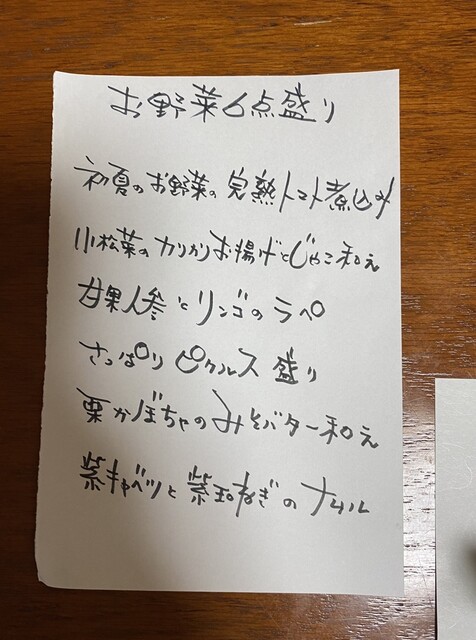 お野菜6点盛り
初夏のお野菜の完熟トマト煮込み
小松菜のカリカリお揚げとじゃこ和え
甘果人参とリンゴのラペ
さっぱりピクルス盛り
栗かぼちゃのみそバター和え
紫キャベツと紫玉ねぎのナムル